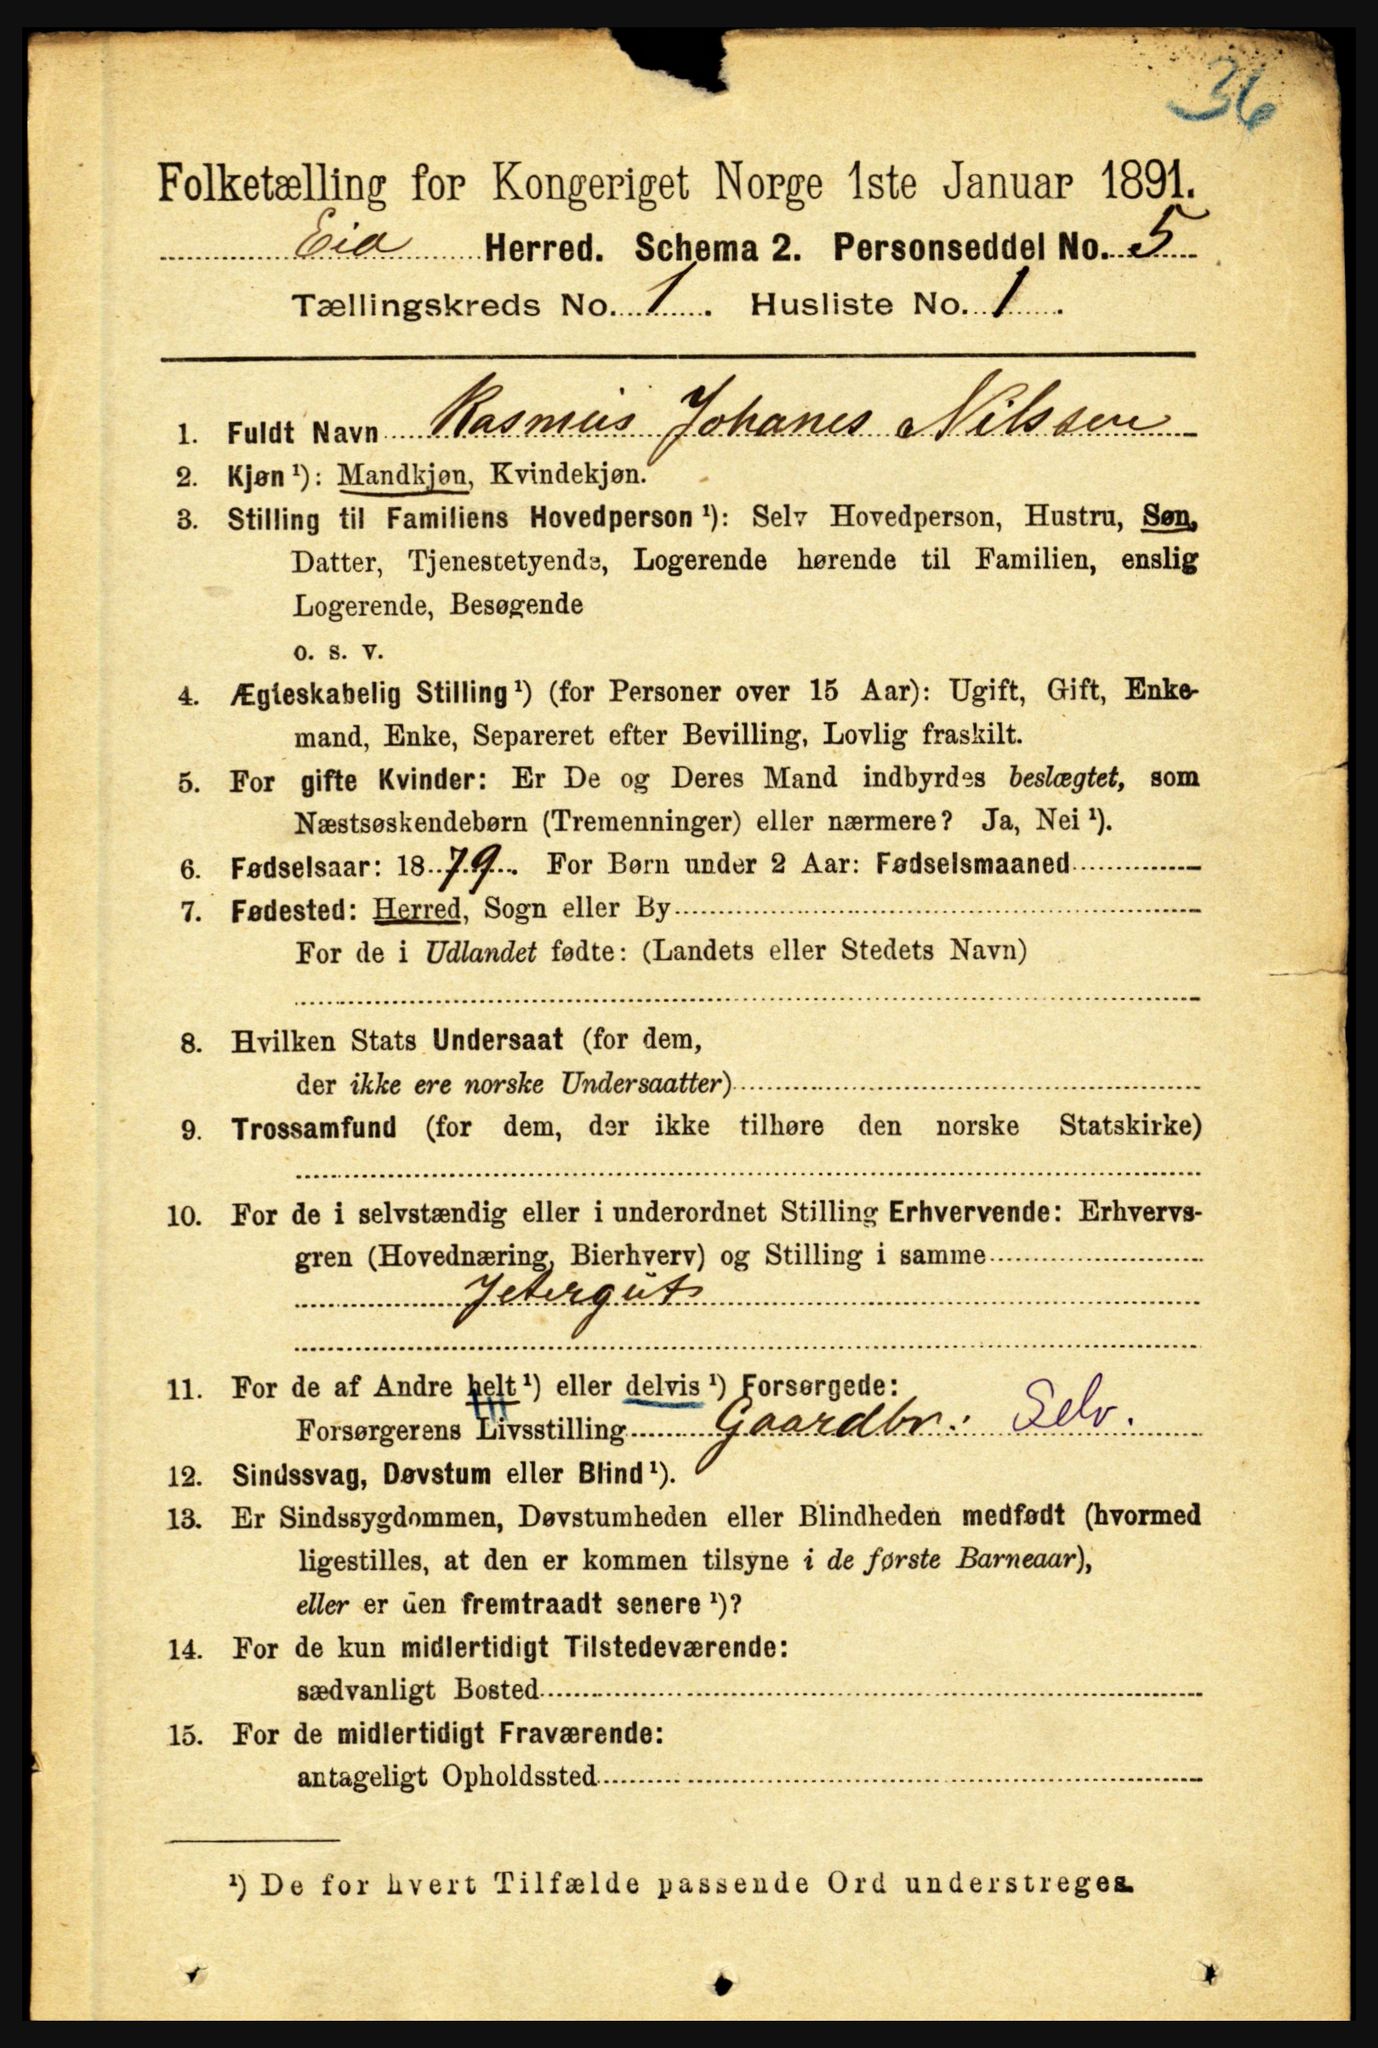 36
Folketælling for Kongeriget Norge 1ste Januar 1891.
Eid Herred. Schema 2. Personseddel No. 5
Tællingskreds No. 1. Husliste No. 1.
1. Fuldt Navn Rasmus Johanes Nilssen
2. Kjøn¹): Mandkjøn, Kvindekjøn.
3. Stilling til Familiens Hovedperson¹): Selv Hovedperson, Hustru, Søn,
Datter, Tjenestetyende, Logerende hørende til Familien, enslig
Logerende, Besøgende
o. s. v.
4. Ægteskabelig Stilling¹) (for Personer over 15 Aar): Ugift, Gift, Enke-
mand, Enke, Separeret efter Bevilling, Lovlig fraskilt.
5. For gifte Kvinder: Er De og Deres Mand indbyrdes beslægtet, som
Næstsøskendebørn (Tremenninger) eller nærmere? Ja, Nei¹).
6. Fødselsaar: 1879. For Børn under 2 Aar: Fødselsmaaned
7. Fødested: Herred, Sogn eller By
For de i Udlandet fødte: (Landets eller Stedets Navn)
8. Hvilken Stats Undersaat (for dem,
der ikke ere norske Undersaatter)
9. Trossamfund (for dem, der ikke tilhøre den norske Statskirke)
10. For de i selvstændig eller i underordnet Stilling Erhvervende: Erhvervs-
gren (Hovednæring, Bierhverv) og Stilling i samme
Jetergut
11. For de af Andre helt¹) eller delvis¹) Forsørgede:
Forsørgerens Livsstilling Gaardbr. Selv.
12. Sindssvag, Døvstum eller Blind¹).
13. Er Sindssygdommen, Døvstumheden eller Blindheden medfødt (hvormed
ligestilles, at den er kommen tilsyne i de første Barneaar),
eller er den fremtraadt senere¹)?
14. For de kun midlertidigt Tilstedeværende:
sædvanligt Bosted
15. For de midlertidigt Fraværende:
antageligt Opholdssted
¹) De for hvert Tilfælde passende Ord understreges.